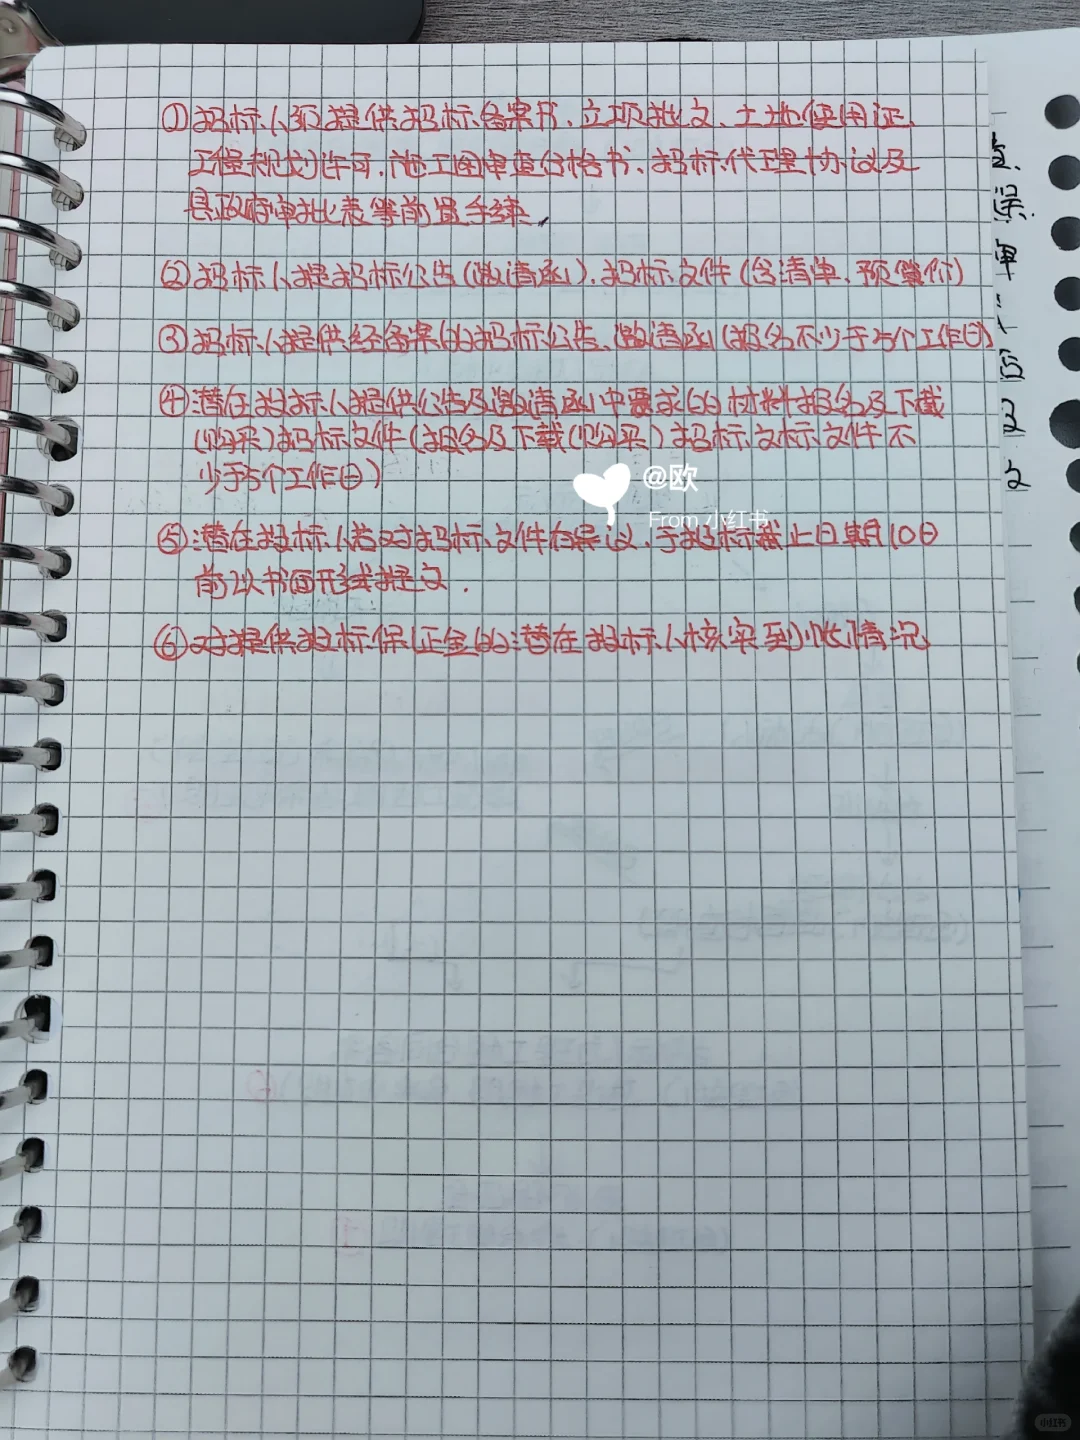 ①招标人须提供招标备案书、立项批文、土地使用证、
工程规划许可、施工图审查合格书、招标代理协议及
县政府审批表等前置手续.
②招标人提招标公告(邀请函)、招标文件(含清单、预算价)
③招标人提供经备案的招标公告、邀请函(报名不少于5个工作日)
④潜在投标人提供公告及邀请函中要求的材料报名及下载
(购买)招标文件(报名及下载(购买)招标文标文件不
少于5个工作日)
@欧
From 小红书
⑤潜在投标人若对招标文件有异议,于投标截止日期10日
前以书面形式提文.
⑥对提供投标保证金的潜在投标人核实到账情况
审
文
小红书